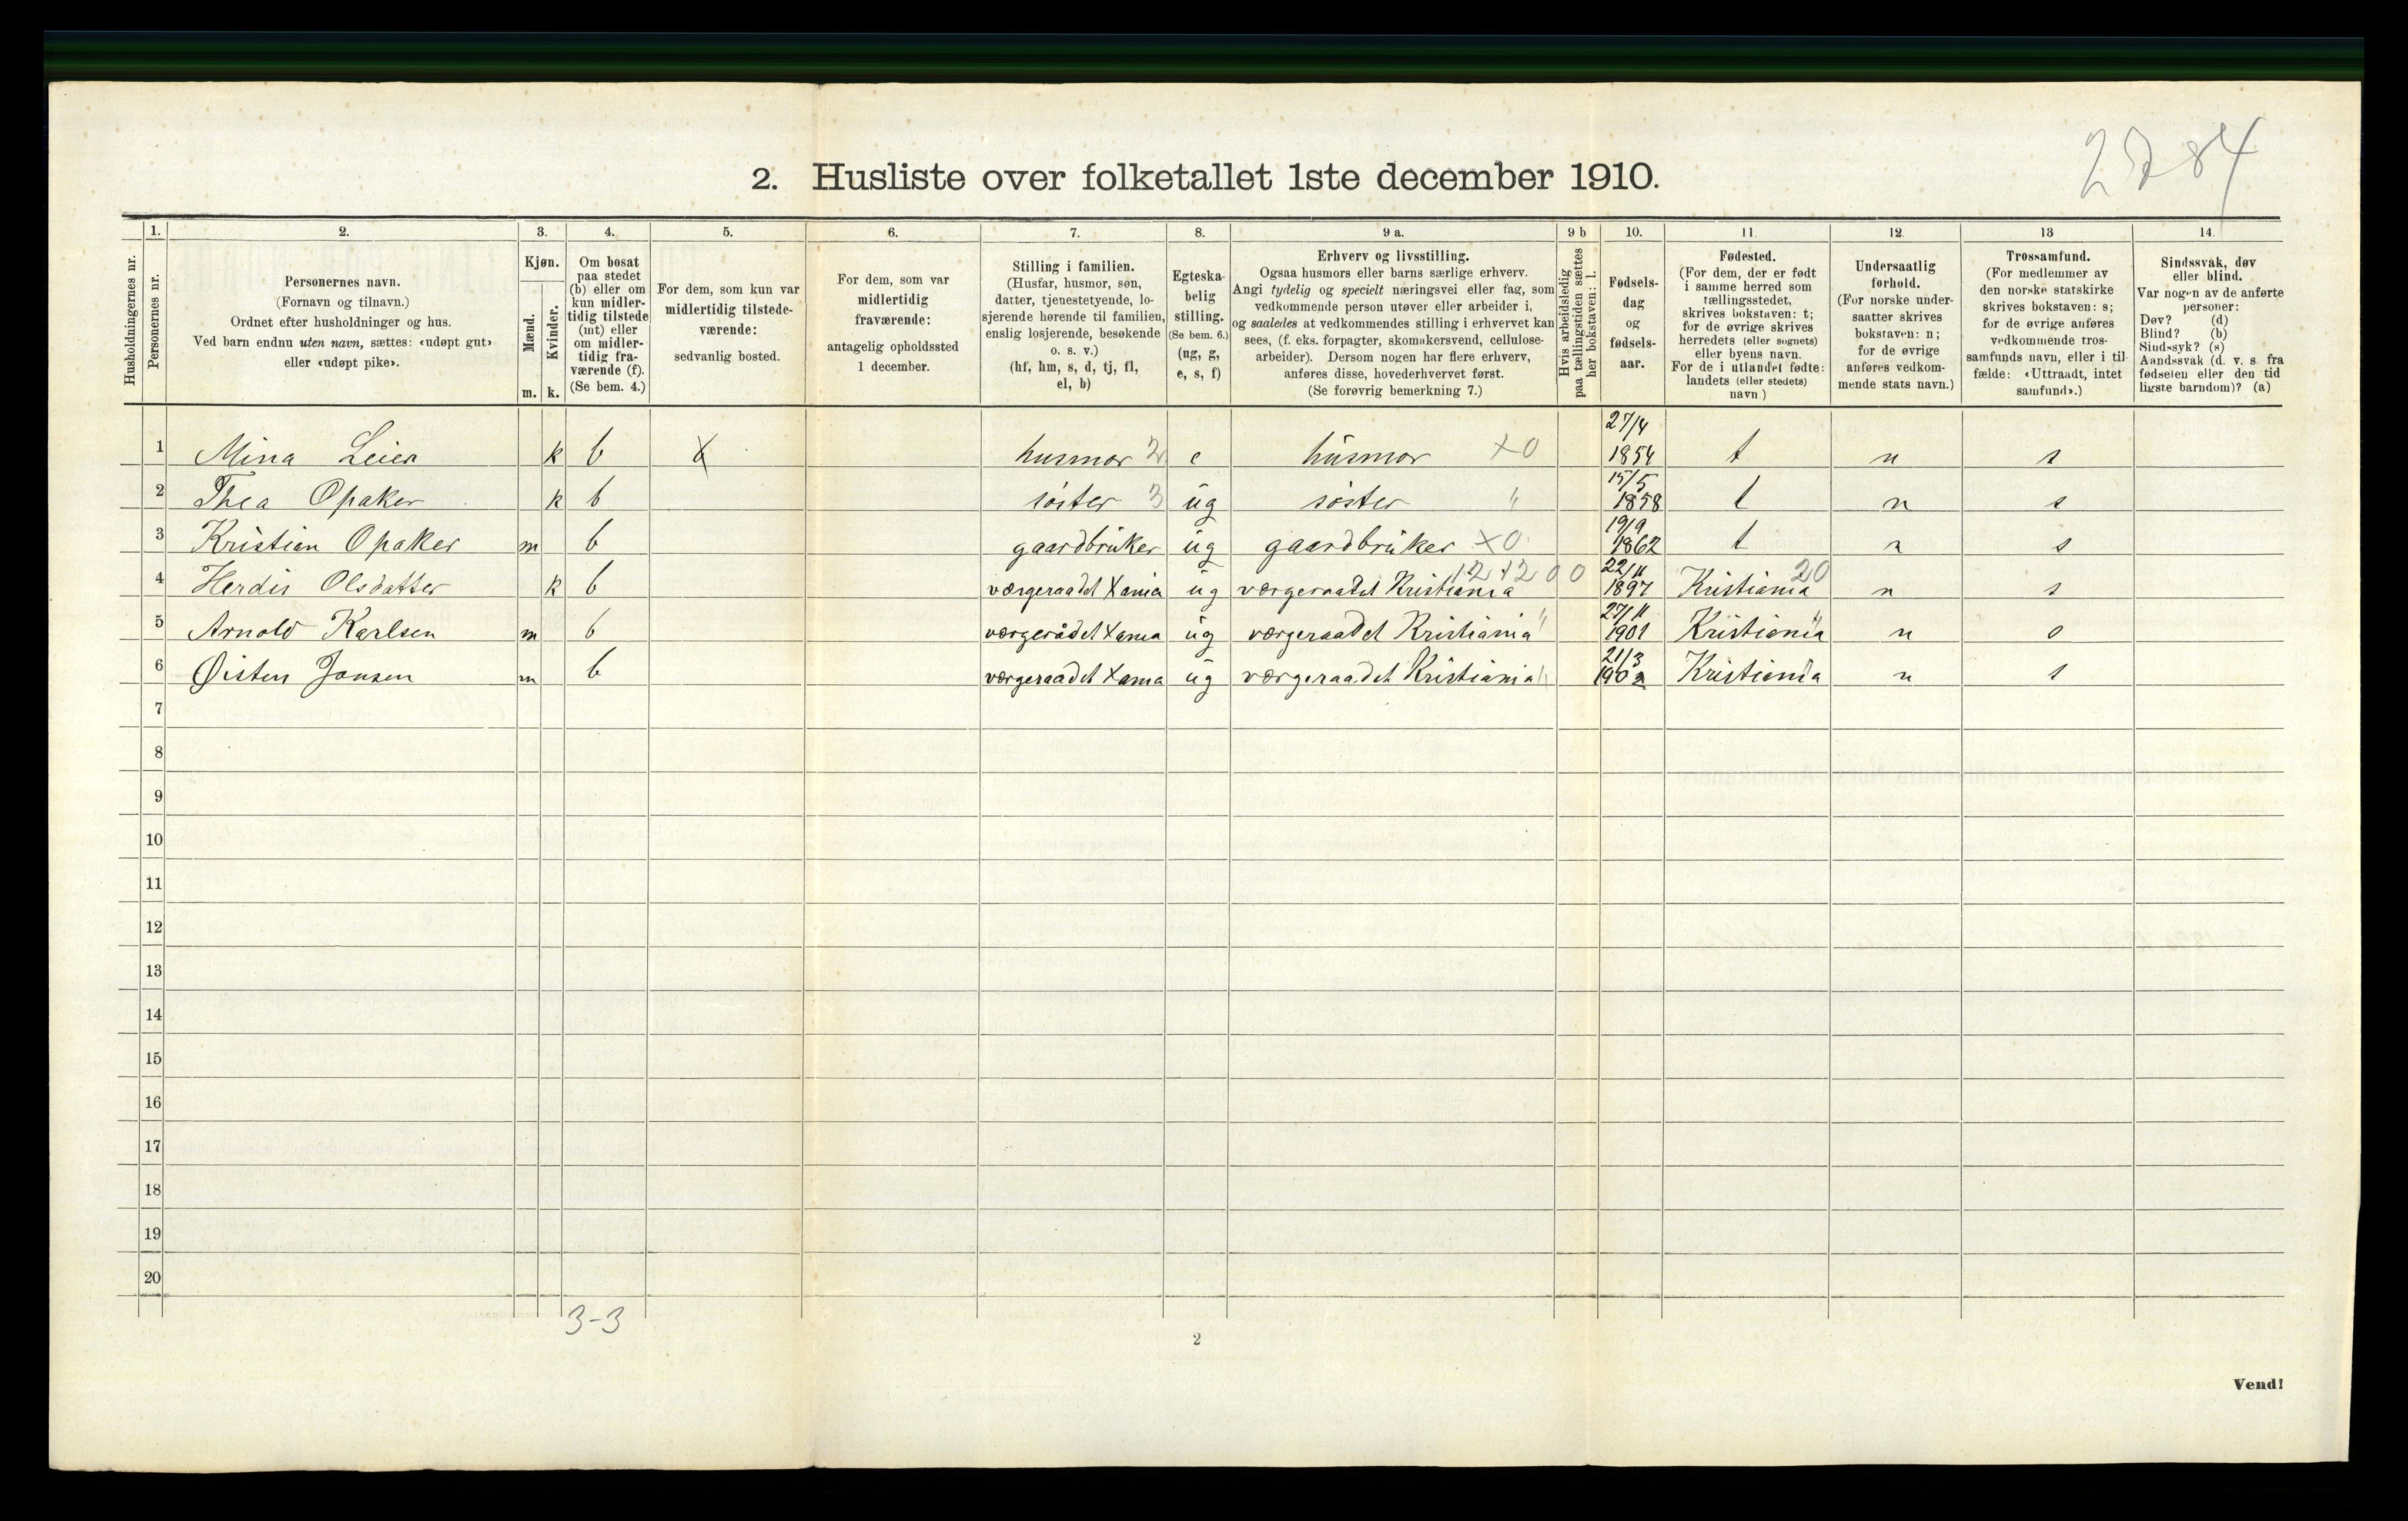 2784
2. Husliste over folketallet 1ste december 1910.
Husholdningernes nr.
1.
Personernes nr.
2.
Personernes navn.
(Fornavn og tilnavn.)
Ordnet efter husholdninger og hus.
Ved barn endnu uten navn, sættes: «udøpt gut»
eller «udøpt pike».
3.
Kjøn.
Mænd.
Kvinder.
m. k.
4.
Om bosat
paa stedet
(b) eller om
kun midler-
tidig tilstede
(mt) eller
om midler-
tidig fra-
værende (f).
(Se bem. 4.)
5.
For dem, som kun var
midlertidig tilstede-
værende:
sedvanlig bosted.
6.
For dem, som var
midlertidig
fraværende:
antagelig opholdssted
1 december.
7.
Stilling i familien.
(Husfar, husmor, søn,
datter, tjenestetyende, lo-
sjerende hørende til familien,
enslig losjerende, besøkende
o. s. v.)
(hf, hm, s, d, tj, fl,
el, b)
8.
Egteska-
belig
stilling.
(Se bem. 6.)
(ug, g,
e, s, f)
9 a.
Erhverv og livsstilling.
Ogsaa husmors eller barns særlige erhverv.
Angi tydelig og specielt næringsvei eller fag, som
vedkommende person utøver eller arbeider i,
og saaledes at vedkommendes stilling i erhvervet kan
sees, (f. eks. forpagter, skomakersvend, cellulose-
arbeider). Dersom nogen har flere erhverv,
anføres disse, hovederhvervet først.
(Se forøvrig bemerkning 7.)
9 b
Hvis arbeidsledig
paa tællingstiden sættes
her bokstaven: l.
10.
Fødsels-
dag
og
fødsels-
aar.
11.
Fødested.
(For dem, der er født
i samme herred som
tællingsstedet,
skrives bokstaven: t;
for de øvrige skrives
herredets (eller sognets)
eller byens navn.
For de i utlandet fødte:
landets (eller stedets)
navn.)
12.
Undersaatlig
forhold.
(For norske under-
saatter skrives
bokstaven: n;
for de øvrige
anføres vedkom-
mende stats navn.)
13
Trossamfund.
(For medlemmer av
den norske statskirke
skrives bokstaven: s;
for de øvrige anføres
vedkommende tros-
samfunds navn, eller i til-
fælde: «Uttraadt, intet
samfund».)
14.
Sindssvak, døv
eller blind.
Var nogen av de anførte
personer:
Døv? (d)
Blind? (b)
Sindssyk? (s)
Aandssvak (d. v. s. fra
fødselen eller den tid-
ligste barndom)? (a)
1 Mina Leier k b b husmor 2 e husmor x0 27/4 1854 t n s
2 Thea Opaker k b søster 3 ug søster " 15/5 1858 t n s
3 Kristian Opaker m b gaardbruker ug gaardbruker x0 19/9 1862 t n s
4 Herdis Olsdatter k b værgeraadet Xania ug værgeraadet Kristiania 12 12 0 0 22/11 1897 Kristiania 20 n s
5 Arnold Karlsen m b værgerådet Xania ug værgeraadet Kristiania " 27/11 1901 Kristiania " n o
6 Øisten Jonsen m b værgeraadet Xania ug værgeraadet Kristiania " 21/3 1902 Kristiania " n s
7
8
9
10
11
12
13
14
15
16
17
18
19
20
3-3
2
Vend!